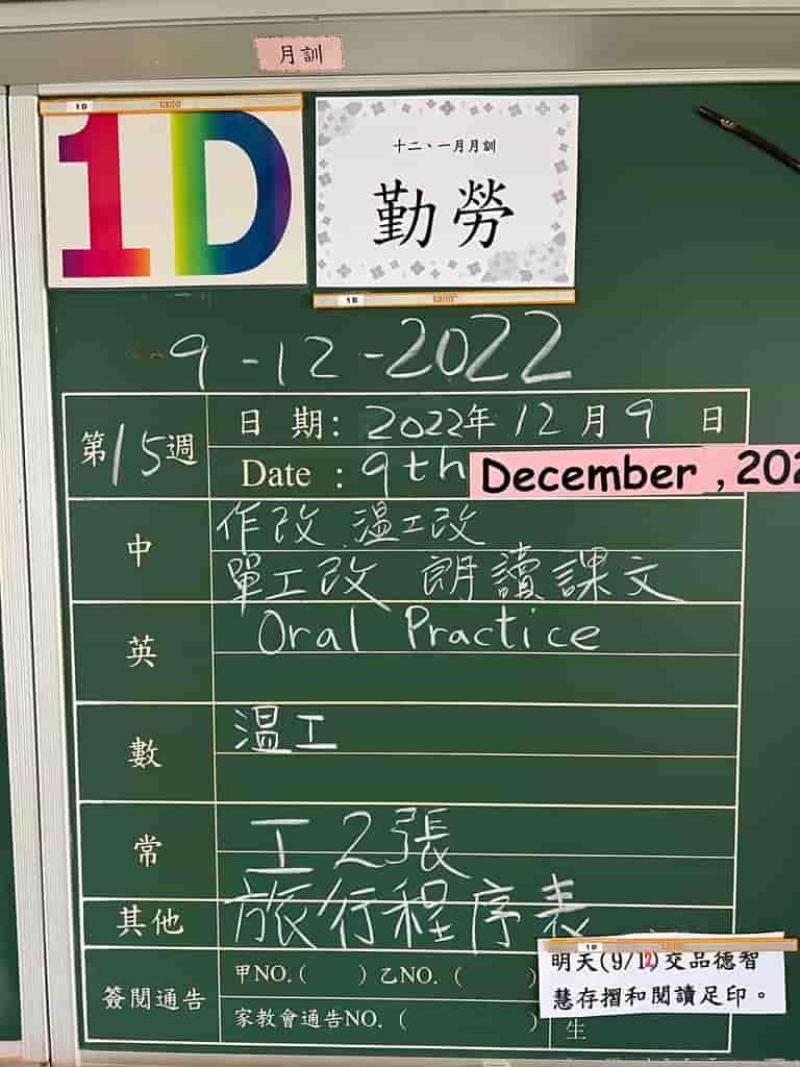 月訓
1D
十二、一月月訓
勤勞
1B
9-12-2022
第15週
日 期： 2022年 12月 9 日
Date : 9th December , 202
中
作改 溫工改
單工改 朗讀課文
英
Oral Practice
數
溫工
常
工2張
其他
旅行程序表
簽閱通告
甲NO.( ) 乙NO. ( )
家教會通告NO. ( )
生
明天(9/12)交品德智
慧存摺和閱讀足印。